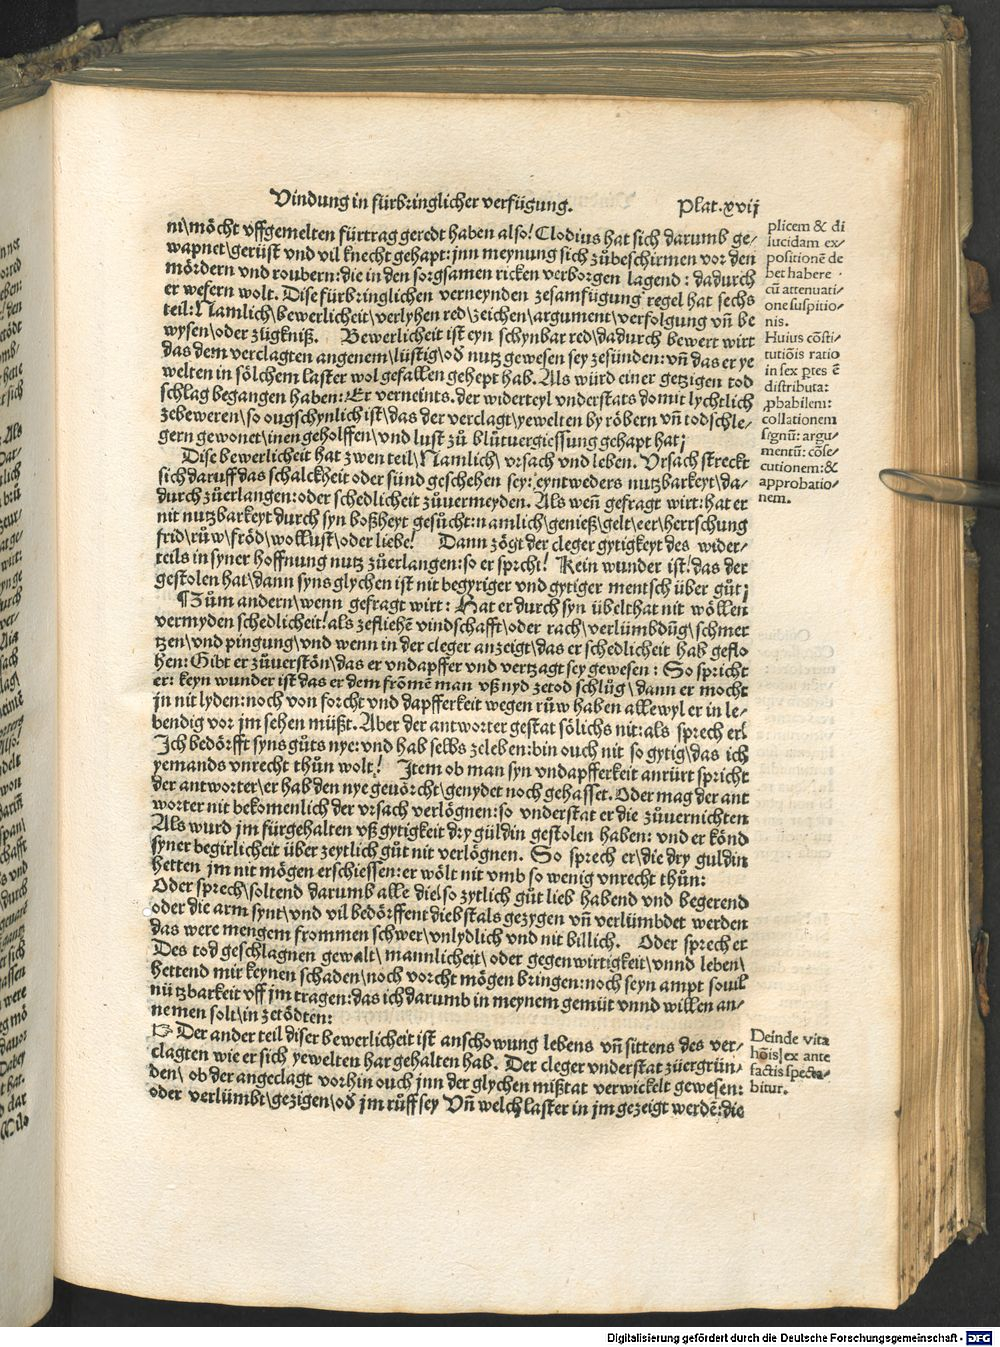 Vindung in fürbringlicher verfügung.
Plat.xvij
ni\möcht vffgemelten fürtrag geredt haben also! Clodius hat sich darumb ge⸗
wapnet\gerüst vnd vil knecht gehapt: jnn meynung sich zůbeschirmen vor den
mördern vnd roubern: die in den sorgsamen ricken verborgen lagend: dadurch
er wefern wolt. Dise fürbringlichen verneynden zesamfügung regel hat sechs
teil: Namlich\bewerlicheit\verlyhen red\zeichen\argument\verfolgung vñ be
wysen\oder zügkniß. Bewerlicheit ist eyn schynbar red\dadurch bewert wirt
das dem verclagten angenem\lüstig\oď nutz gewesen sey zesünden: vñ das er ye
welten in sölchem laster wol gefallen gehept hab. Als würd einer getzigen tod
schlag begangen haben: Er verneints. der widerteyl vnderstats domit lychtlich
zebeweren\so ougschynlich ist\das der verclagt\yewelten by röbern vñ todschle⸗
gern gewonet\inen geholffen\vnd lust zů blůtuergiessung gehapt hat;
Dise bewerlicheit hat zwen teil\Namlich\ vrsach vnd leben. Vrsach streckt
sich daruff das schalckheit oder sünd geschehen sey: eyntweders nutzbarkeyt\da⸗
durch zůerlangen: oder schedlicheit zůuermeyden. Als weñ gefragt wirt: hat er
nit nutzbarkeyt durch syn boßheyt gesůcht: namlich\genieß\gelt\eer\herrschung
frid\růw\fröd\wollust\oder liebe! Dann zögt der cleger gytigkeyt des wider⸗
teils in syner hoffnung nutz zůerlangen: so er spricht! Kein wunder ist! das der
gestolen hat\dann syns glychen ist nit begyriger vnd gytiger mentsch über gůt;
¶Zům andern\wenn gefragt wirt: Hat er durch syn übelthat nit wöllen
vermyden schedlicheit! als zefliehē vindschafft\oder rach\verlümbdūg\schmer
tzen\vnd pingung\vnd wenn in der cleger anzeigt\das er schedlicheit hab geflo
hen: Gibt er zůuerstōn\das er vndapffer vnd vertzagt sey gewesen: So spricht
er: keyn wunder ist das er dem fromē man vß nyd zetod schlůg\dann er mocht
jn nit lyden: noch von forcht vnd dapfferkeit wegen růw haben allewyl er in le⸗
bendig vor jm sehen müßt. Aber der antworter gestat sölichs nit: als sprech er!
Ich bedörfft syns gůts nye: vnd hab selbs zeleben: bin ouch nit so gytig\das ich
yemands vnrecht thůn wolt! Item ob man syn vndapfferkeit anrürt spricht
der antworter\er hab den nye geuörcht\genydet noch gehasset. Oder mag der ant
worter nit bekomenlich der vrsach verlögnen: so vnderstat er die zůuernichten
Als wurd jm fürgehalten vß gytigkeit dry güldin gestolen haben: vnd er könd
syner begirlicheit über zeytlich gůt nit verlögnen. So sprech er\die dry guldin
hetten jm nit mögen erschiessen: er wölt nit vmb so wenig vnrecht thůn:
Oder sprech\soltend darumb alle die\so zytlich gůt lieb habend vnd begerend
oder die arm synt\vnd vil bedörffent diebstals gezygen vñ verlümbdet werden
das were mengem frommen schwer\vnlydlich vnd nit billich. Oder sprech er
Des tod geschlagnen gewalt\mannlicheit\oder gegenwirtigkeit\vnnd leben\
hettend mir keynen schaden\noch vorcht mögen bringen: noch seyn ampt souil
nützbarkeit vff jm tragen: das ich darumb in meynem gemüt vnnd willen an⸗
nemen solt\in zetödten:
☞ Der ander teil diser bewerlicheit ist anschowung lebens vñ sittens des ver⸗
clagten wie er sich yewelten har gehalten hab. Der cleger vnderstat zůergrün⸗
den\ ob der angeclagt vorhin ouch jnn der glychen mißtat verwickelt gewesen:
oder verlümbt\gezigen\oď jm růff sey Vñ welch laster in jm gezeigt werdē: die
plicem & di
lucidam ex⸗
positionē de
bet habere ·
cū attenuati⸗
one suspitio⸗
nis.
Huius cōsti⸗
tutiōis ratio
in sex ptes ē
distributa:
pbabilem:
collationem
signū: argu⸗
mentū: cōse⸗
cutionem: &
approbatio⸗
nem.
Deinde vita
hōis\ex ante
factis specta⸗
bitur.
Digitalisierung gefördert durch die Deutsche Forschungsgemeinschaft - DFG